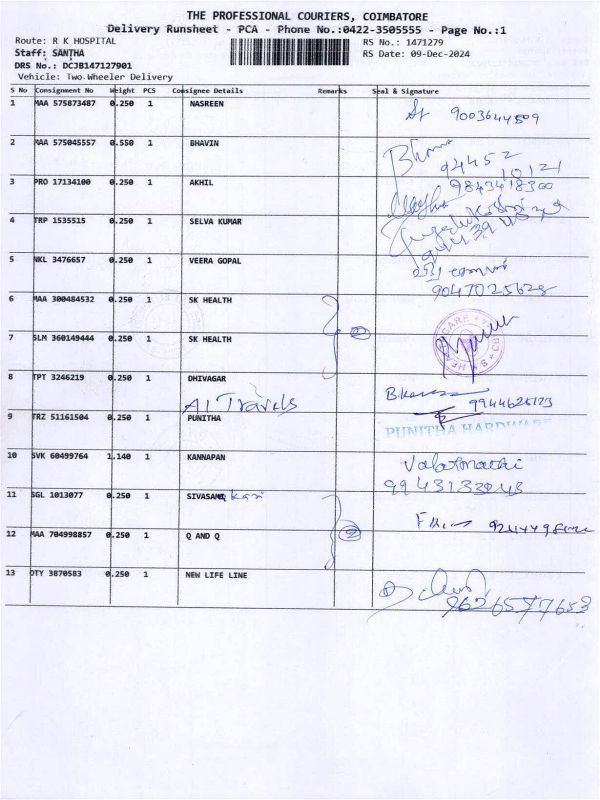 THE PROFESSIONAL COURIERS, COIMBATORE
Delivery Runsheet - PCA - Phone No.:0422-3505555 - Page No.:1
Route: R K HOSPITAL RS No.: 1471279
Staff: SANTHA RS Date: 09-Dec-2024
DRS No.: DCJB147127901
Vehicle: Two Wheeler Delivery
S No Consignment No Weight PCS Consignee Details Remarks Seal & Signature
1 MAA 575873487 0.250 1 NASREEN 9003644509
2 MAA 575045557 0.550 1 BHAVIN
94452
10121
3 PRO 17134100 0.250 1 AKHIL 9843418300
4 TRP 1535515 0.250 1 SELVA KUMAR
5 NKL 3476657 0.250 1 VEERA GOPAL
9047025628
6 MAA 300484532 0.250 1 SK HEALTH
2
7 SLM 360149444 0.250 1 SK HEALTH
8 TPT 3246219 0.250 1 DHIVAGAR
A1 Travels 9944625123
9 TRZ 51161504 0.250 1 PUNITHA PUNITHA HARDWARE
10 SVK 60499764 1.140 1 KANNAPAN
11 SGL 1013077 0.250 1 SIVASAMA
2
12 MAA 704998857 0.250 1 Q AND Q
13 OTY 3870583 0.250 1 NEW LIFE LINE
9626577653